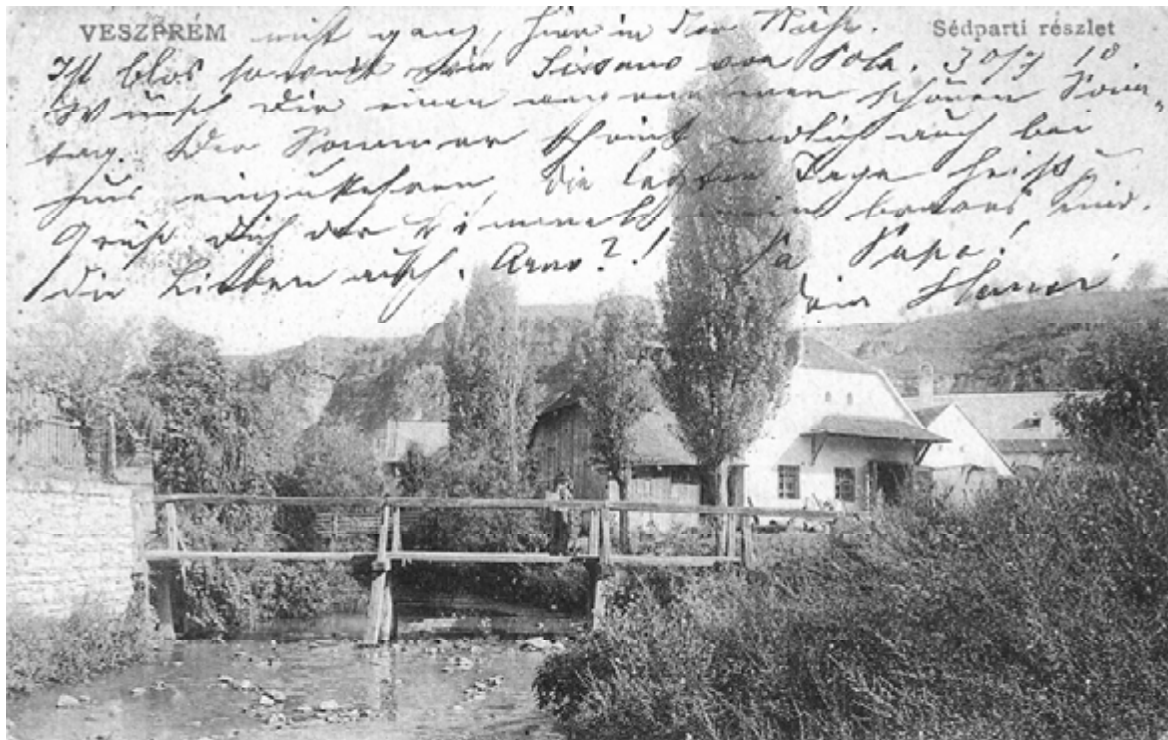 VESZPRÉM Sédparti részlet
nicht ganz, hier in der Nähe.
Ist blos soweit wie Sissano von Pola. 30/7 10.
Wünsch Dir einen angenehmen schönen Sonn-
tag. Der Sommer scheint endlich auch bei
uns einzukehren, die letzten Tage heiß
Grüß Dich der
die Lieben auch. ?! Papa!
Dein